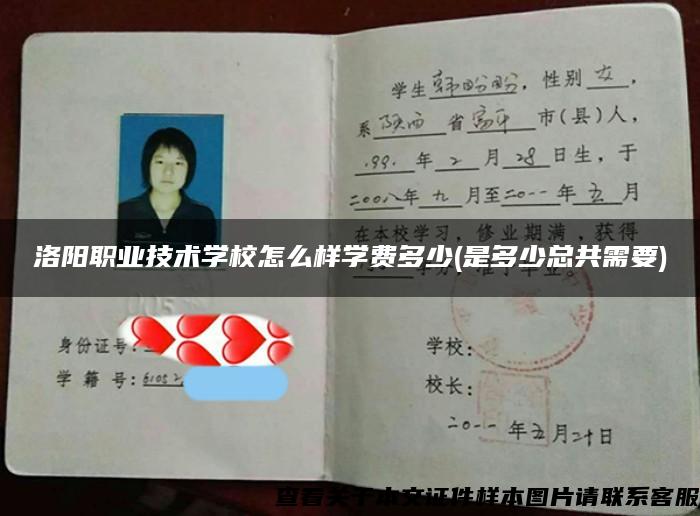 学生韩盼盼，性别女，
系陕西省富平市(县)人，
.99.年2月28日生，于
二00八年九月至二0一一年五月
在本校学习，修业期满，获得
洛阳职业技术学校怎么样学费多少(是多少总共需要)
身份证号:
学籍号:61052
学校:
校长:
二0一一年五月二十日
查看关于本文证件样本图片请联系客服